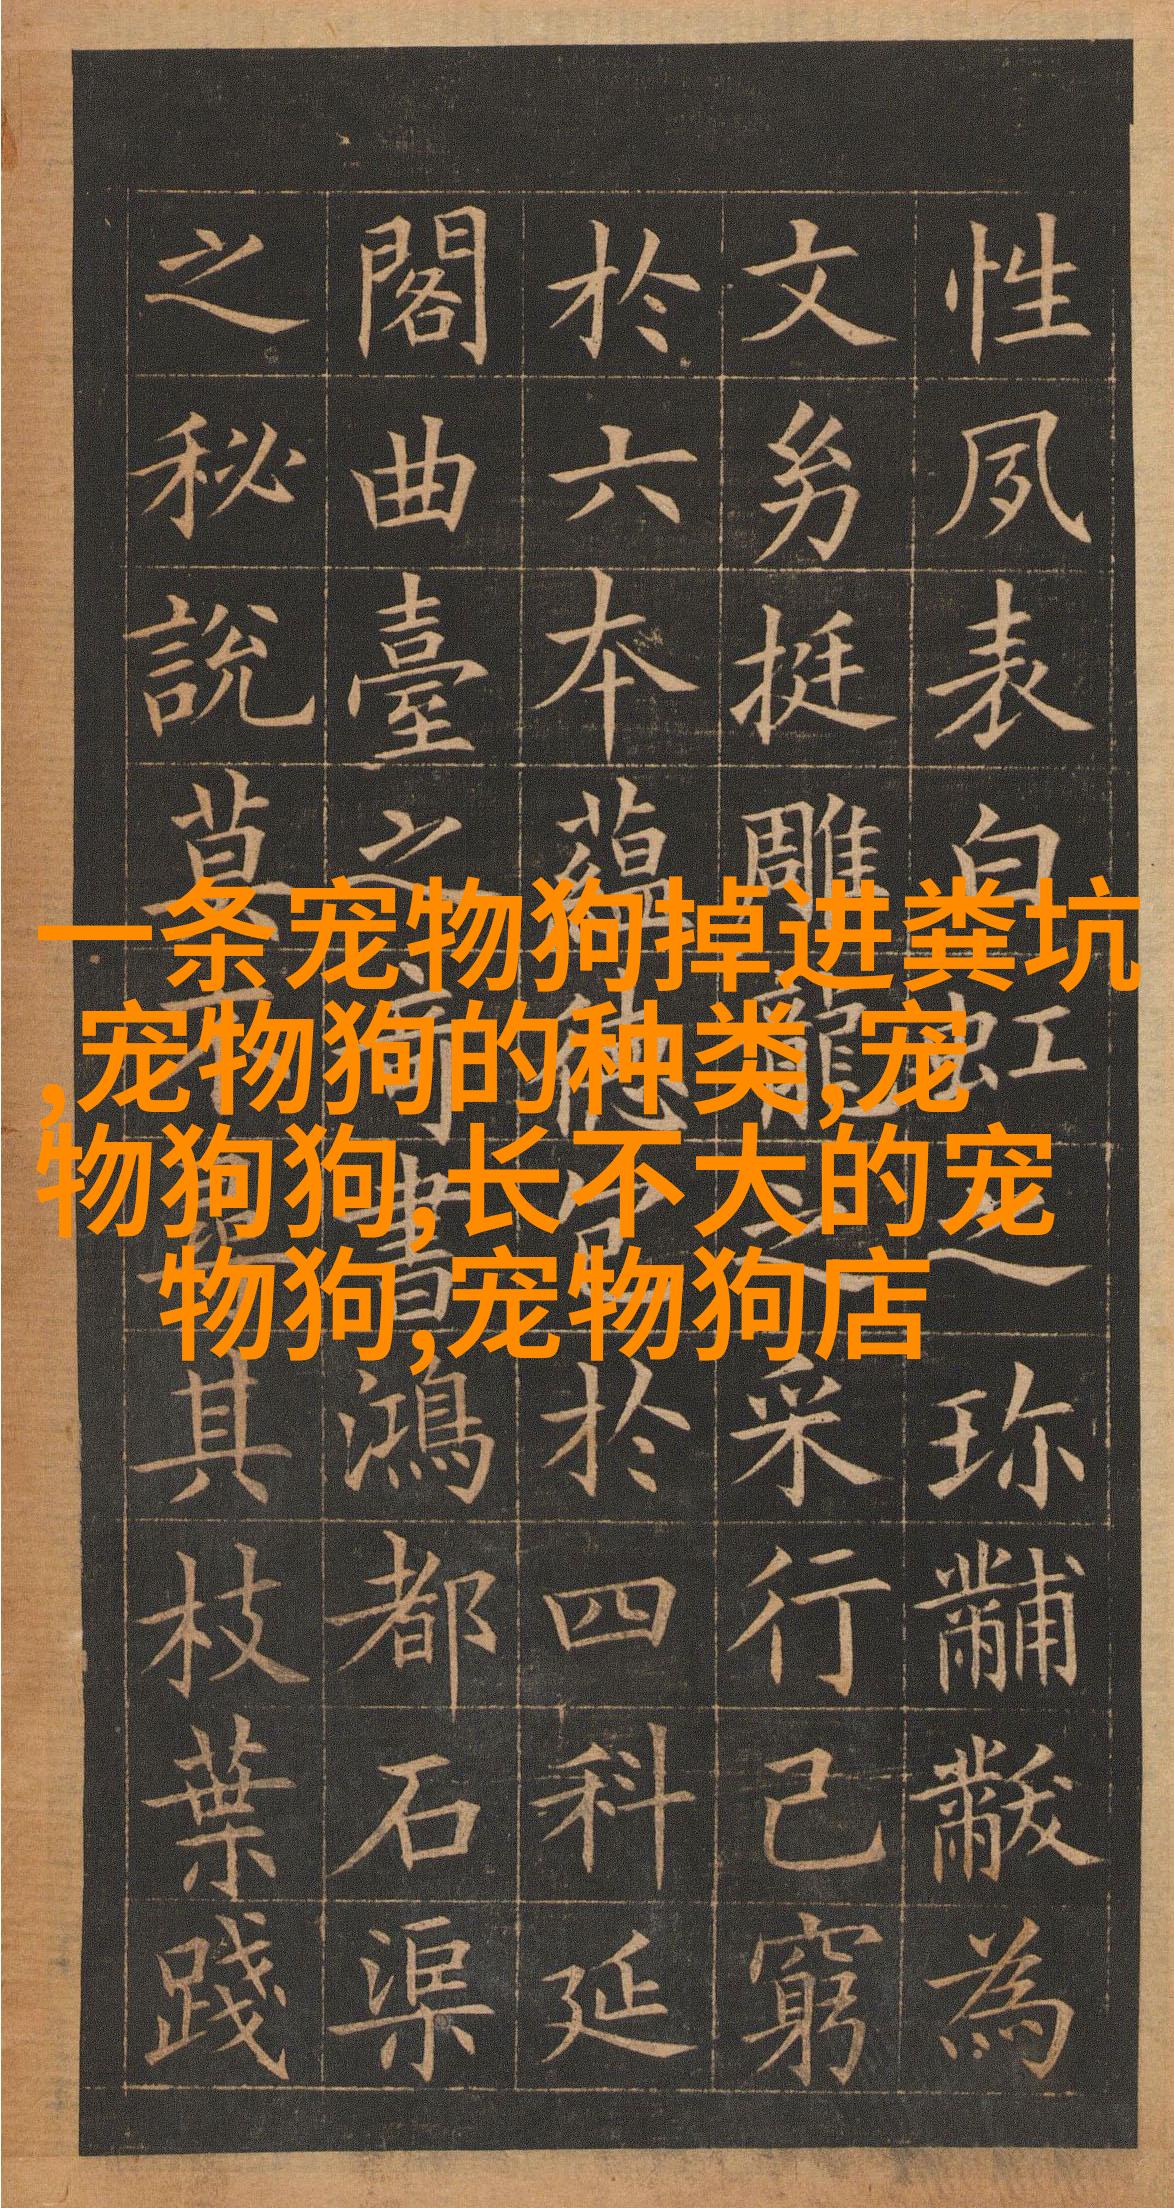 一条宠物狗掉进粪坑
,宠物狗的种类,宠
物狗狗,长不大的宠
物狗,宠物狗店
性夙表白虹之珍黼黻為
文㓜挺雕龍之采行己窮
於六本蘊德包於四科延
閣曲臺之奇書鴻都石渠
之秘說莫不尋其枝葉踐